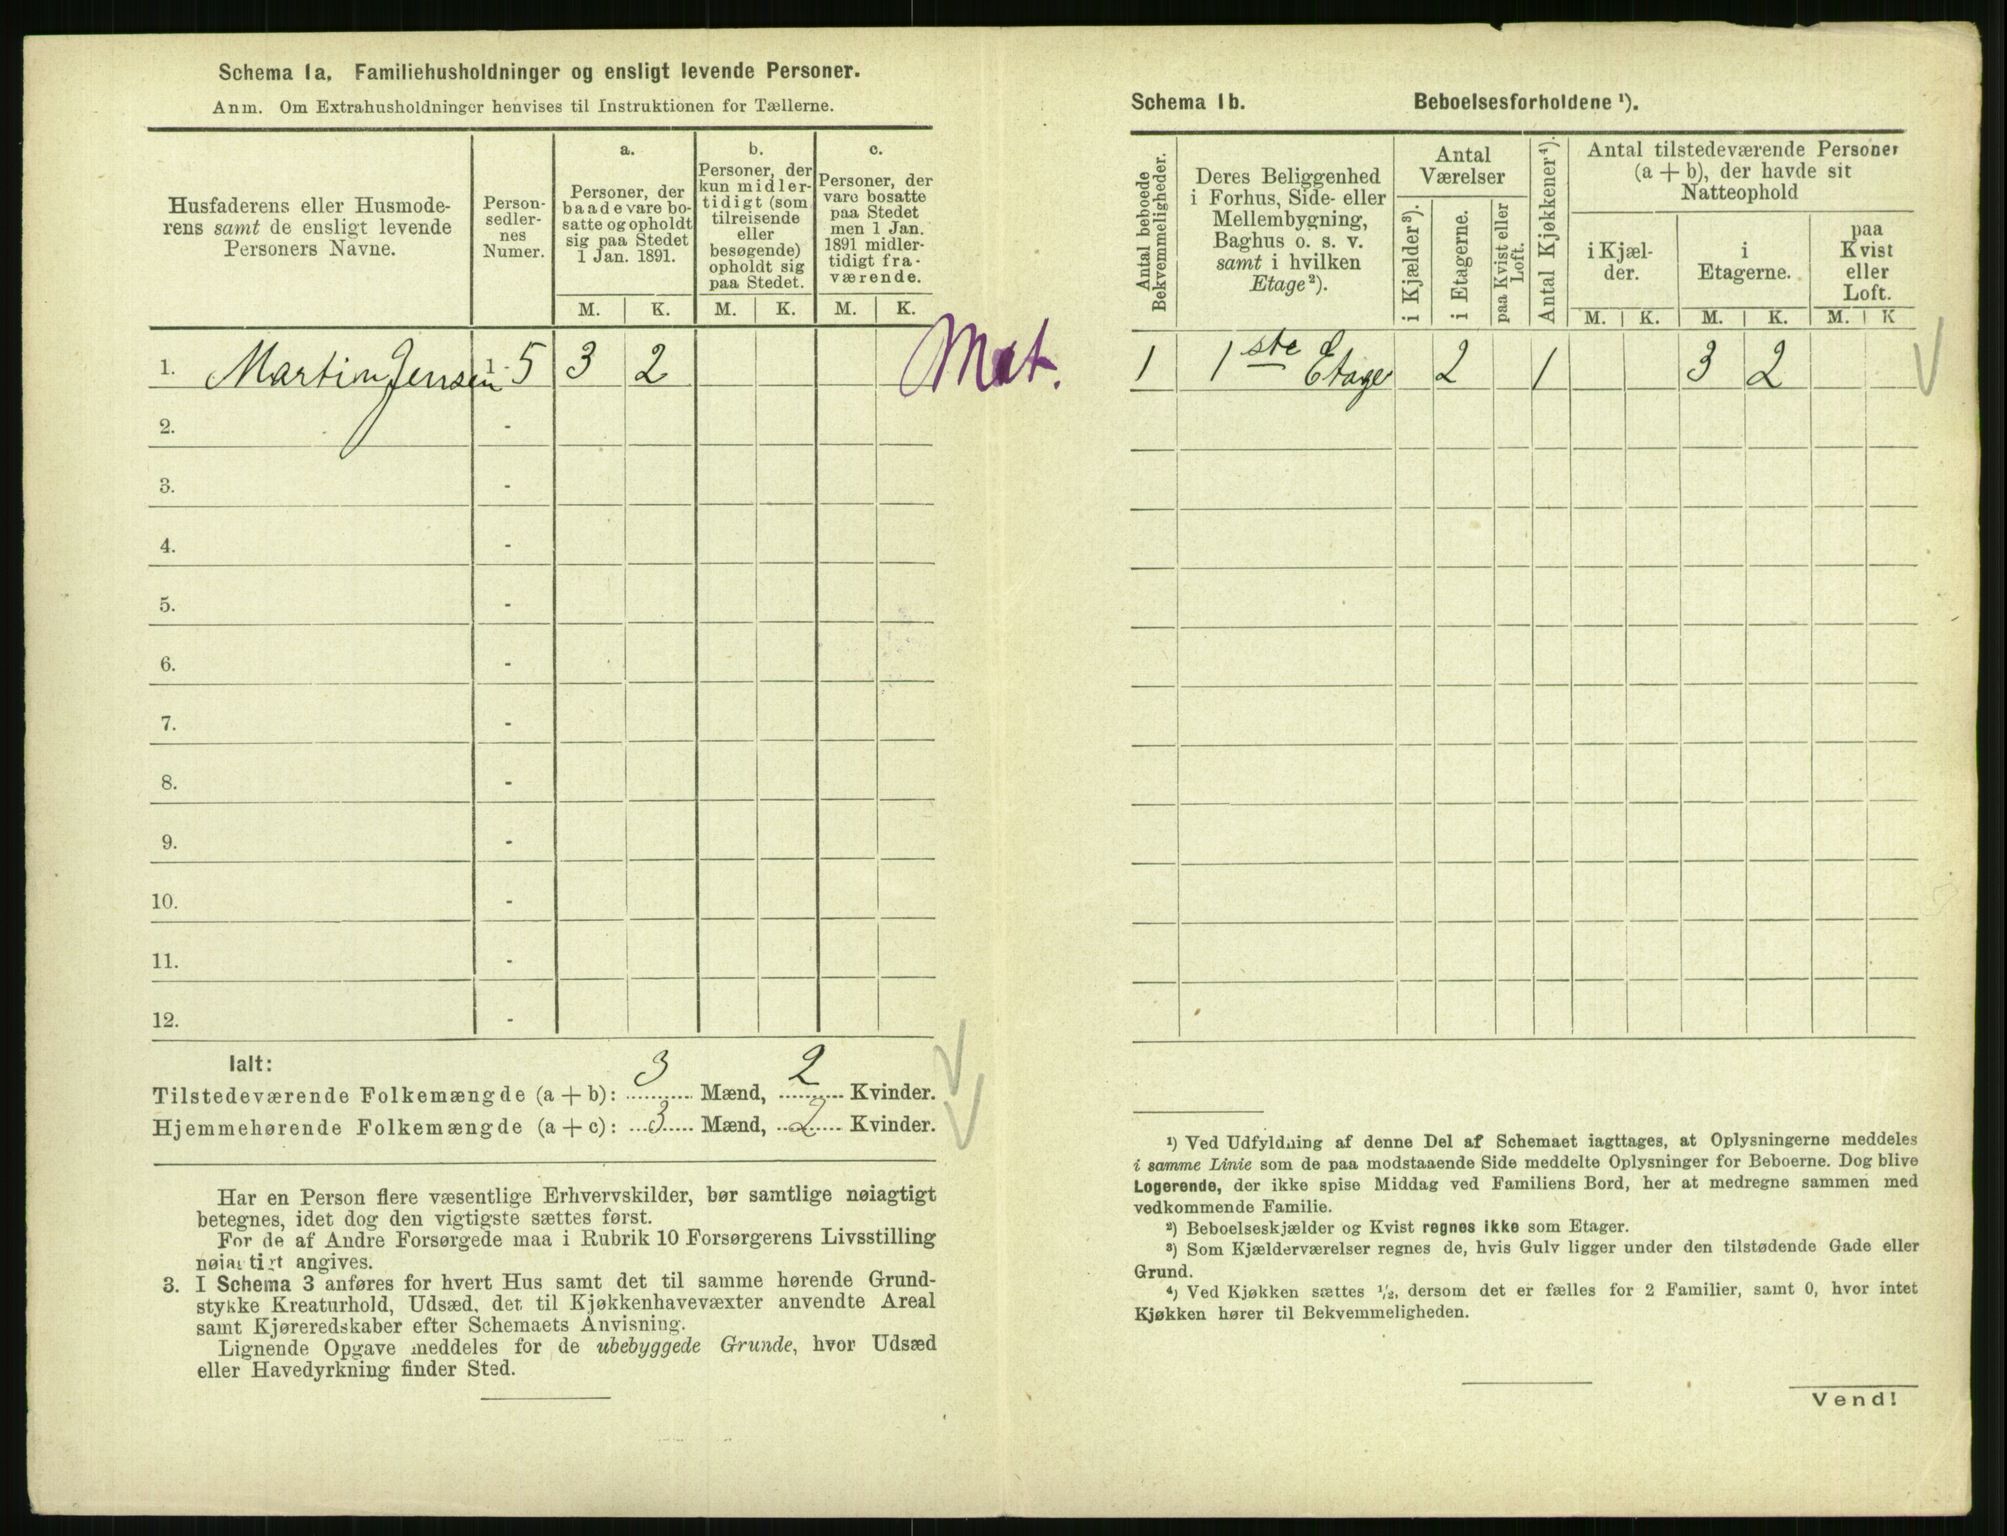 Schema 1a. Familiehusholdninger og ensligt levende Personer.
Anm. Om Extrahusholdninger henvises til Instruktionen for Tællerne.
Husfaderens eller Husmode-
rens samt de ensligt levende
Personers Navne.
Person-
sedler-
nes
Numer.
a.
Personer, der
baade vare bo-
satte og opholdt
sig paa Stedet
1 Jan. 1891.
b.
Personer, der
kun midler-
tidigt (som
tilreisende
eller
besøgende)
opholdt sig
paa Stedet.
c.
Personer, der
vare bosatte
paa Stedet
men 1 Jan.
1891 midler-
tidigt fra-
værende.
M. K. M. K. M. K.
1. Martin Jensen 1 - 5 3 2 Mat.
2. -
3. -
4. -
5. -
6. -
7. -
8. -
9. -
10. -
11. -
12. -
Ialt:
Tilstedeværende Folkemængde (a + b): 3 Mænd, 2 Kvinder.
Hjemmehørende Folkemængde (a + c): 3 Mænd, 2 Kvinder.
Har en Person flere væsentlige Erhvervskilder, bør samtlige nøiagtigt
betegnes, idet dog den vigtigste sættes først.
For de af Andre Forsørgede maa i Rubrik 10 Forsørgerens Livsstilling
nøiagtigt angives.
3. I Schema 3 anføres for hvert Hus samt det til samme hørende Grund-
stykke Kreaturhold, Udsæd, det til Kjøkkenhavevæxter anvendte Areal
samt Kjøreredskaber efter Schemaets Anvisning.
Lignende Opgave meddeles for de ubebyggede Grunde, hvor Udsæd
eller Havedyrkning finder Sted.
Schema 1b. Beboelsesforholdene ¹).
Antal beboede
Bekvemmeligheder.
Deres Beliggenhed
i Forhus, Side- eller
Mellembygning,
Baghus o. s. v.
samt i hvilken
Etage ²).
Antal
Værelser
i Kjælder ³).
i Etagerne.
paa Kvist eller
Loft.
Antal Kjøkkener ⁴).
Antal tilstedeværende Personer
(a + b), der havde sit
Natteophold
i Kjæl-
der.
i
Etagerne.
paa
Kvist
eller
Loft.
M. K. M. K. M. K
1 1ste Etage 2 1 3 2
¹) Ved Udfyldning af denne Del af Schemaet iagttages, at Oplysningerne meddeles
i samme Linie som de paa modstaaende Side meddelte Oplysninger for Beboerne. Dog blive
Logerende, der ikke spise Middag ved Familiens Bord, her at medregne sammen med
vedkommende Familie.
²) Beboelseskjælder og Kvist regnes ikke som Etager.
³) Som Kjælderværelser regnes de, hvis Gulv ligger under den tilstødende Gade eller
Grund.
⁴) Ved Kjøkken sættes ½, dersom det er fælles for 2 Familier, samt 0, hvor intet
Kjøkken hører til Bekvemmeligheden.
Vend!